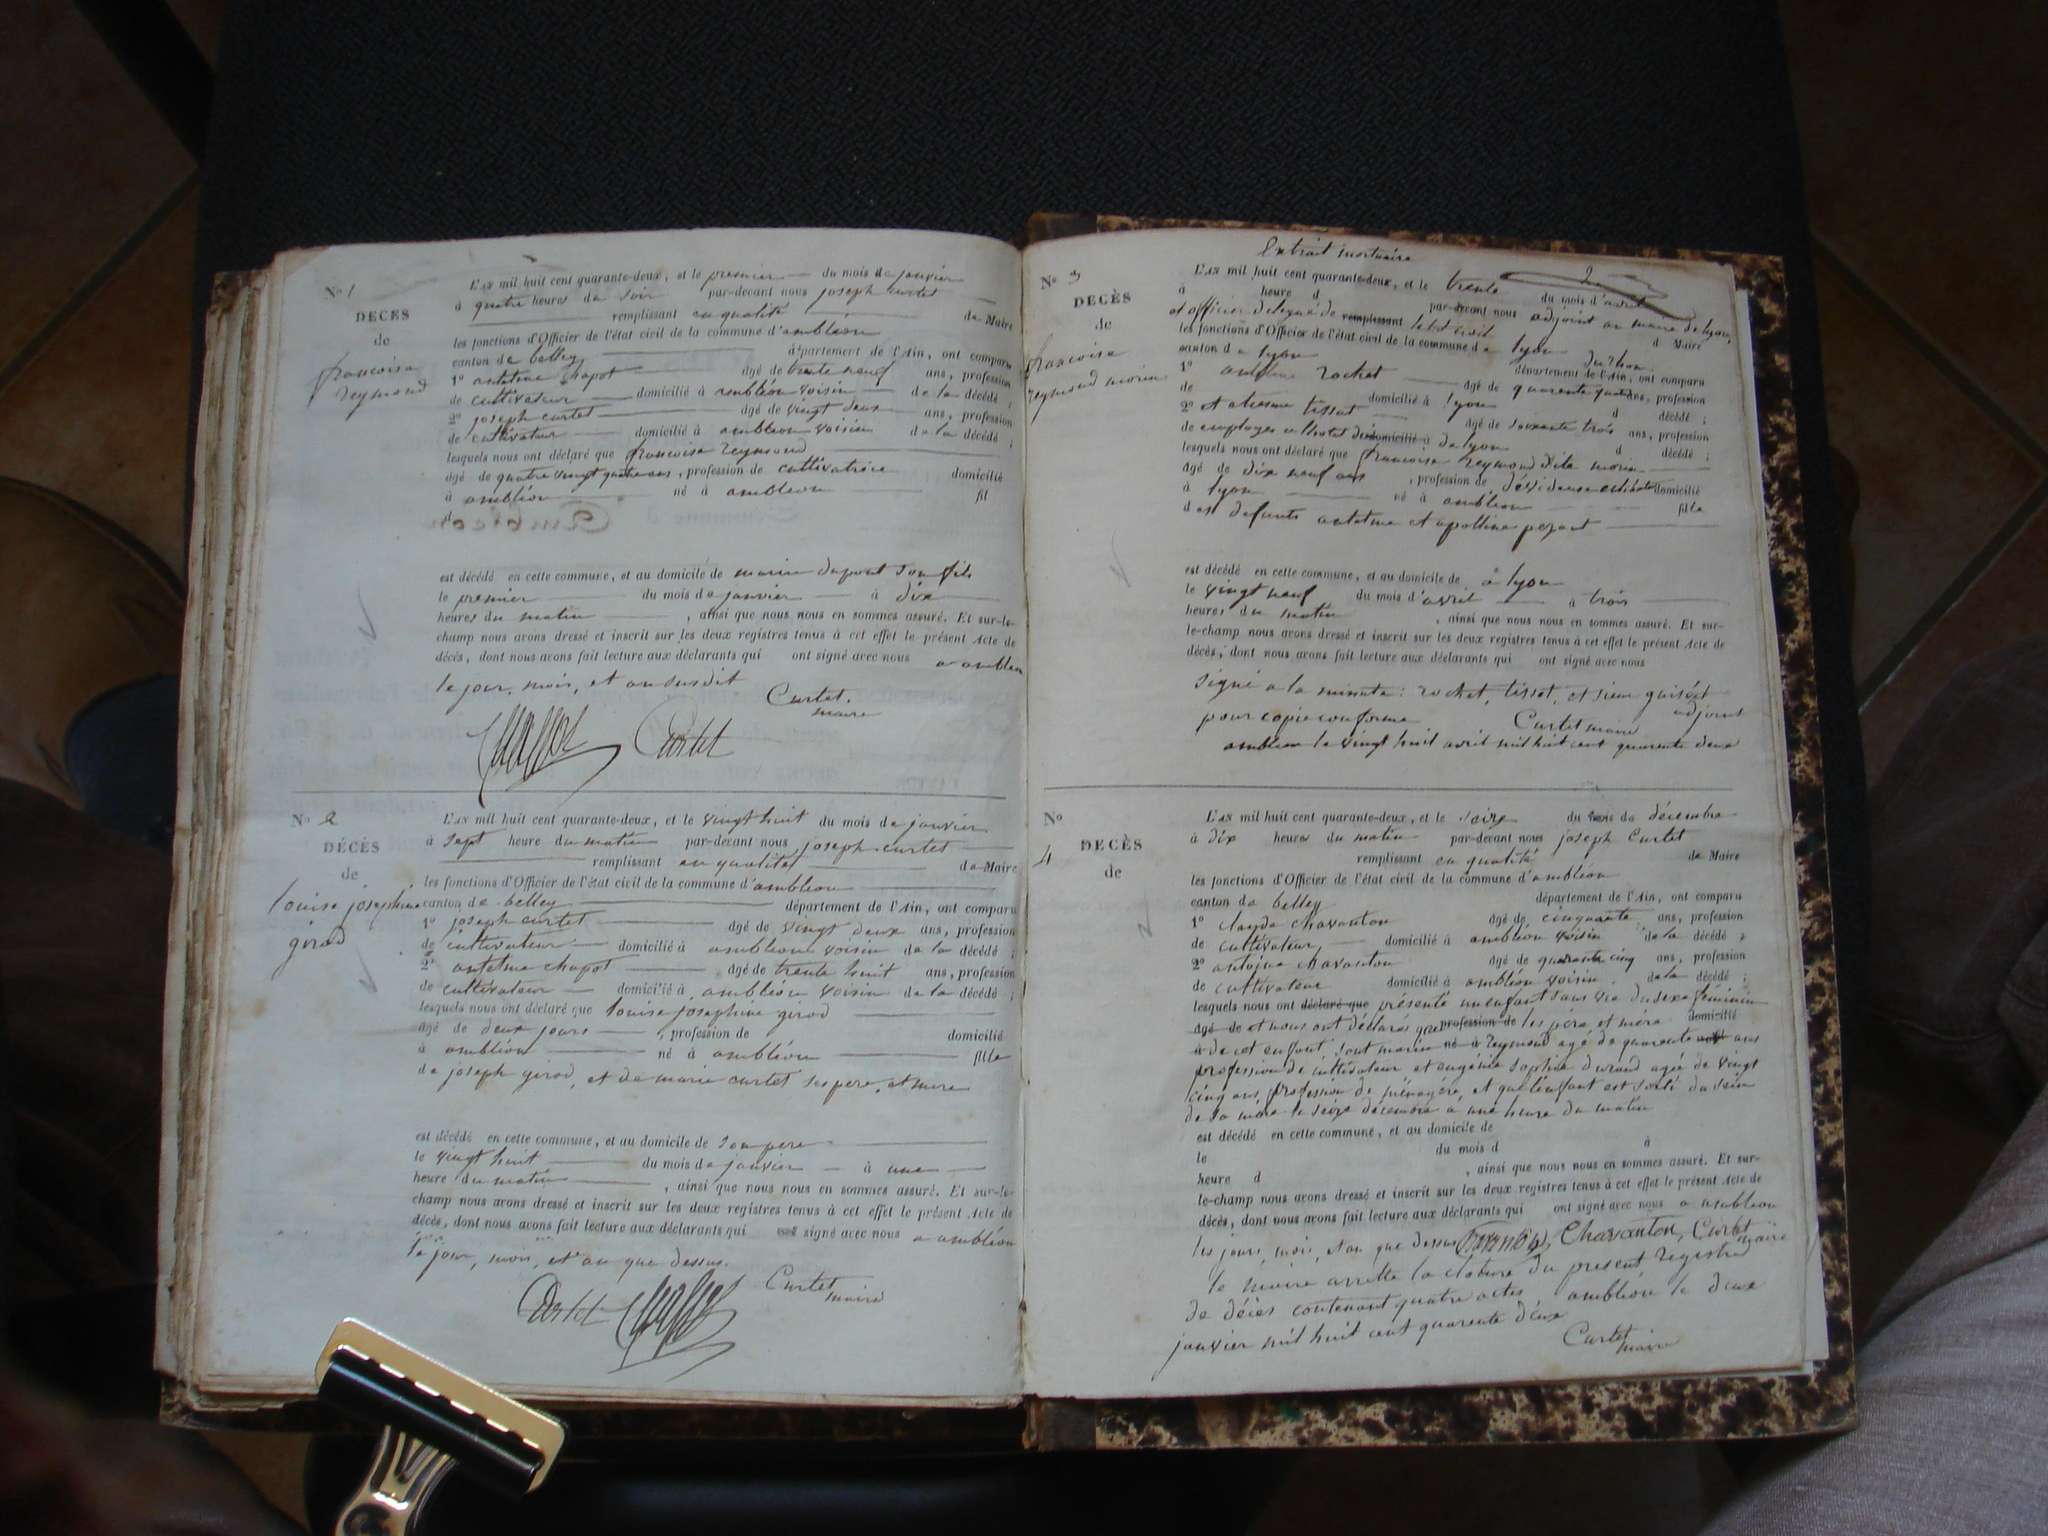 No 1
DÉCÈS
de
francoise
reymond
L'AN mil huit cent quarante-deux, et le premier du mois de janvier
à quatre heures du soir par-devant nous joseph curtet
remplissant en qualité de Maire
les fonctions d'Officier de l'état civil de la commune d'ambléon
canton de belley département de l'Ain, ont comparu
1o antelme chapot âgé de trente neuf ans, profession
de cultivateur domicilié à ambléon voisin de la décédé ;
2o joseph curtet âgé de vingt deux ans, profession
de cultivateur domicilié à ambléon voisin de la décédé ;
lesquels nous ont déclaré que francoise reymond
âgé de quatre vingt quatre ans, profession de cultivatrice domicilié
à ambléon né à ambléon fil
d
est décédé en cette commune, et au domicile de marin dupont son fils
le premier du mois de janvier à dix
heures du matin, ainsi que nous nous en sommes assuré. Et sur-le-
champ nous avons dressé et inscrit sur les deux registres tenus à cet effet le présent Acte de
décès, dont nous avons fait lecture aux déclarants qui ont signé avec nous a ambléon
le jour, mois, et an susdit
Curtet
maire
Chapot Curtet
No 2
DÉCÈS
de
louise josephine
girod
L'AN mil huit cent quarante-deux, et le vingt huit du mois de janvier
à sept heure du matin par-devant nous joseph curtet
remplissant en qualité de Maire
les fonctions d'Officier de l'état civil de la commune d'ambléon
canton de belley département de l'Ain, ont comparu
1o joseph curtet âgé de vingt deux ans, profession
de cultivateur domicilié à ambléon voisin de la décédé ;
2o antelme chapot âgé de trente huit ans, profession
de cultivateur domicilié à ambléon voisin de la décédé ;
lesquels nous ont déclaré que louise josephine girod
âgé de deux jours, profession de domicilié
à ambléon né à ambléon fille
de joseph girod, et de marie curtet ses pere, et mere
est décédé en cette commune, et au domicile de son pere
le vingt huit du mois de janvier à une
heure du matin, ainsi que nous nous en sommes assuré. Et sur-le-
champ nous avons dressé et inscrit sur les deux registres tenus à cet effet le présent Acte de
décès, dont nous avons fait lecture aux déclarants qui ont signé avec nous a ambléon
le jour, mois, et an que dessus.
Curtet
maire
Curtet Chapot
Extrait mortuaire
No 3
DÉCÈS
de
francoise
reymond morin
L'AN mil huit cent quarante-deux, et le trente du mois d'avril
à heure d par-devant nous adjoint au maire de lyon,
et officier delegué de remplissant letat civil d Maire
les fonctions d'Officier de l'état civil de la commune de lyon
canton de lyon du rhone département de l'Ain, ont comparu
1o rochet âgé de quarente quatre ans, profession
de domicilié à lyon d décédé ;
2o etiesme tissot âgé de soixante trois ans, profession
de employes a lhotel domicilié à de lyon d décédé ;
lesquels nous ont déclaré que francoise reymond dite morin
âgé de dix neuf ans, profession de dévideuse domicilié
à lyon né à ambléon fille
des defunts antelme et apolline pezant
est décédé en cette commune, et au domicile de a lyon
le vingt neuf du mois d'avril à trois
heures du matin, ainsi que nous nous en sommes assuré. Et sur-
le-champ nous avons dressé et inscrit sur les deux registres tenus à cet effet le présent Acte de
décès, dont nous avons fait lecture aux déclarants qui ont signé avec nous
signé a la minute : rochet, tissot, et adjoint
pour copie conforme Curtet maire
ambléon le vingt huit avril mil huit cent quarente deux
No
4
DÉCÈS
de
L'AN mil huit cent quarante-deux, et le seize du mois de décembre
à dix heures du matin par-devant nous joseph Curtet
remplissant en qualité de Maire
les fonctions d'Officier de l'état civil de la commune d'ambléon
canton de belley département de l'Ain, ont comparu
1o claude chavanton âgé de cinquante ans, profession
de cultivateur, domicilié à ambléon voisin de la décédé ;
2o antoine chavanton âgé de quarante cinq ans, profession
de cultivateur domicilié à ambléon voisin de la décédé ;
lesquels nous ont déclaré que présenté un enfant sans vie du sexe féminin
âgé de et nous ont déclarés que profession de les père, et mère domicilié
à de cet enfant sont marin né à reymond agé de quarente ans
profession de cultivateur et eugénie sophie durand agée de vingt
cinq ans, profession de ménagère, et que l'enfant est sorti du sein
de sa mère le seize décembre a une heure du matin
est décédé en cette commune, et au domicile de
le du mois d à
heure d, ainsi que nous nous en sommes assuré. Et sur-
le-champ nous avons dressé et inscrit sur les deux registres tenus à cet effet le présent Acte de
décès, dont nous avons fait lecture aux déclarants qui ont signé avec nous a ambléon
les jours, mois, et an que dessus Chavanton, Curtet maire
le maire arrette la cloture du present registre
de décès contenant quatre actes, ambléon le deux
janvier mil huit cent quarente deux
Curtet
maire